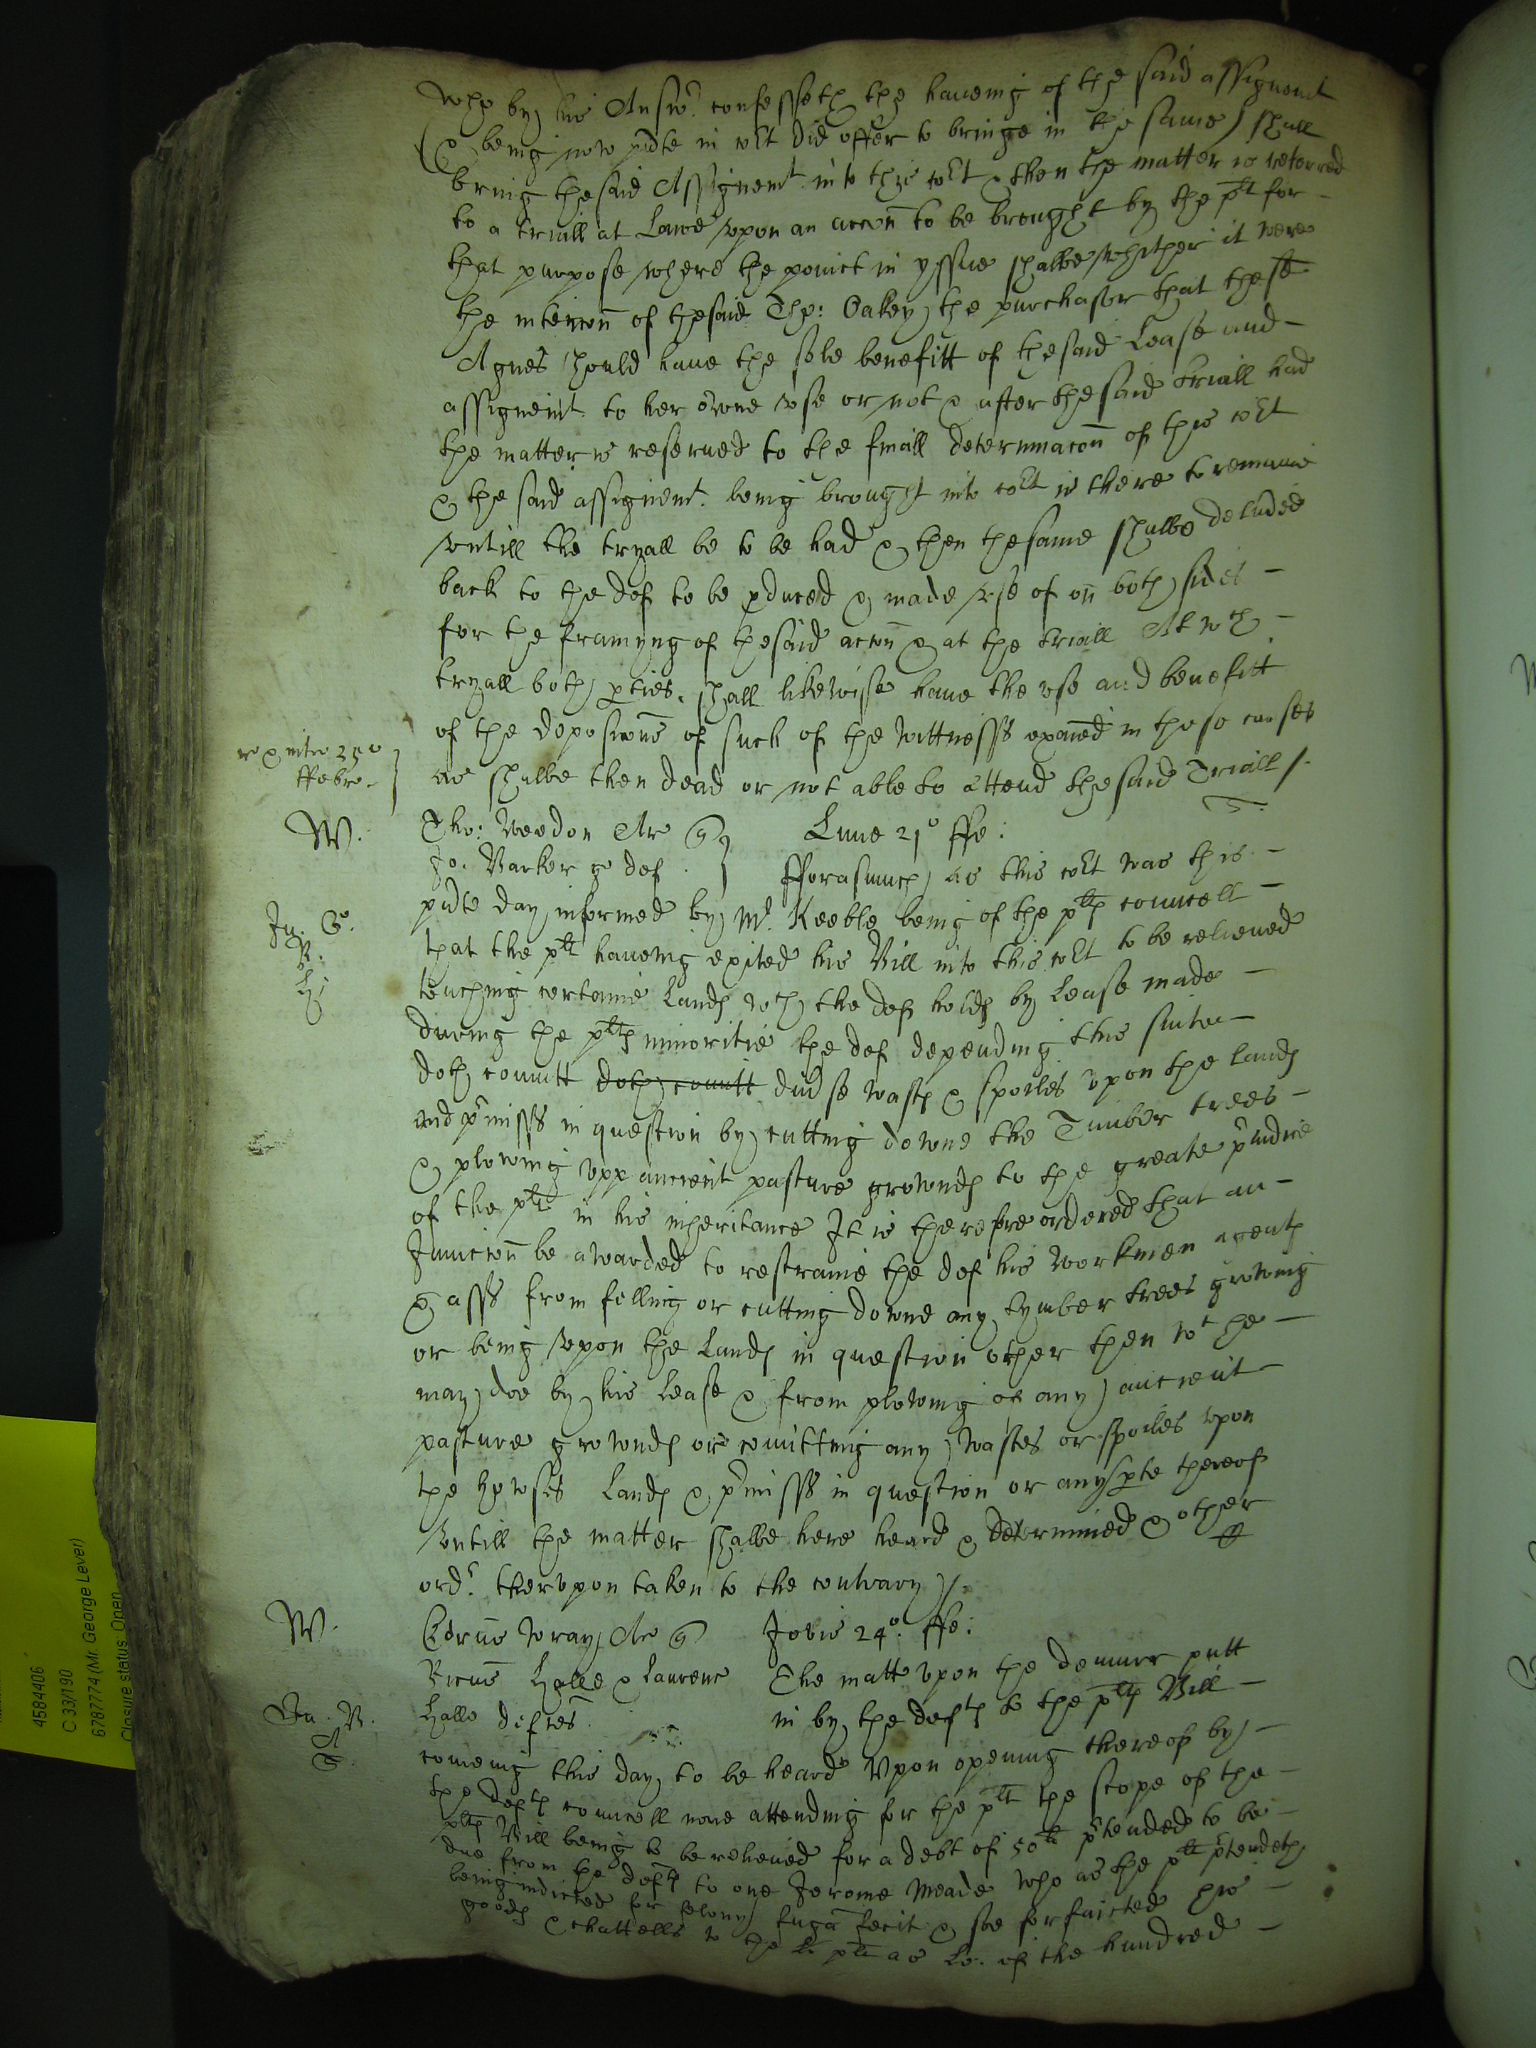 who by his Answ.r confesseth the haueing of the said assignemt
(& being now pñte in coͬt did offer to bringe in the same) shall
bring the said Assignemt. into this coͬt & then the matter is referred
to a triall at Lawe vpon an accoñ to be brought by the plt for
that purpose where the poinct in yssue shalbe whither it were
the intencoñ of the said Tho: Oakey the purchasor that the sd
Agnes should haue the sole benefitt of the said Lease and
assignemt. to her owne vse or not & after the said triall had
the matter is reserued to the finall determinacoñ of this coͬt
& the said assignemt. being brought into coͬt is there to remaine
vntill the tryall be to be had & then the same shalbe deliu̴ed
back to the def to be p̱duced & made vse of on both sides
for the framyng of the said accoñ & at the triall At wch
tryall both p̱ties shall likewise haue the vse and benefitt
of the deposicoñs of such of the wittnesses exaied in these causes
as shalbe then dead or not able to attend the said Triall /.
ffebr.
W.
Tho: Weedon Ar q
Jo. Barker g def
Lune 21º ffe:
fforasmuch as this coͬt was this
pñte day informed by Mr. Keeble being of the pltes councell
that the plt haueing exited his Bill into this coͬt to be relieued
touching certaine Landes wch the def holdes by Lease made
during the pltes minoritie the def depending this suite
doth comitt doth comitt diu̴se wastes & spoiles vpon the landes
and p̄misses in question by cutting downe the Timber trees
& plowing vpp ancient pasture growndes to the greate p̄iudice
of the plt in his inheritance It is therefore ordered that an
Iniunccoñ be awarded to restraine the def his workmen agentes
& asss from felling or cutting downe any tymber trees growing
or being vpon the Landes in question other then wt he
may doe by his lease & from plowing of any ancient
pasture growndes or comitting any wastes or spoiles vpon
the howses Landes & p̄misses in question or any p̱te thereof
vntill the matter shalbe here heard & determined & other
ordr. thervpon taken to the contrary /.
W.
Edrūs Wray Ar q
Jovis 24º. ffe:
Ricūs Halle & Laurenc
Halle deftes
The matt̴ vpon the demurr putt
in by the deftes to the pltes Bill
comeing this day to be heard Vpon opening thereof by
the deftes councell none attending for the plt the scope of the
pltes Bill being to be relieued for a debt of 50li p̄tended to be
due from the deftes to one Jerome Meade who as the plt p̄tendeth
being indicted for felony fugā fecit & soe forfaicted his
goodes & chattells to the plt as Lo. of the hundred
4584406
C 33/190
6787774 (Mr. George Lever)
Closure status: Open